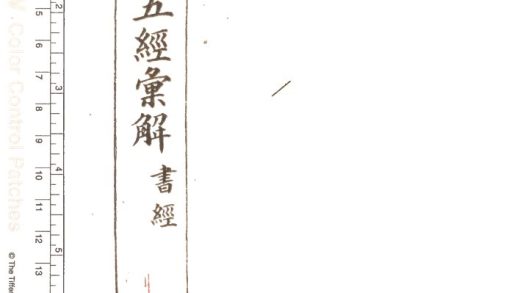 五經彙解
書經
Color Control Patches
© The Tiffe
2
3
4
5
5
6
7
8
9
10
11
12
13